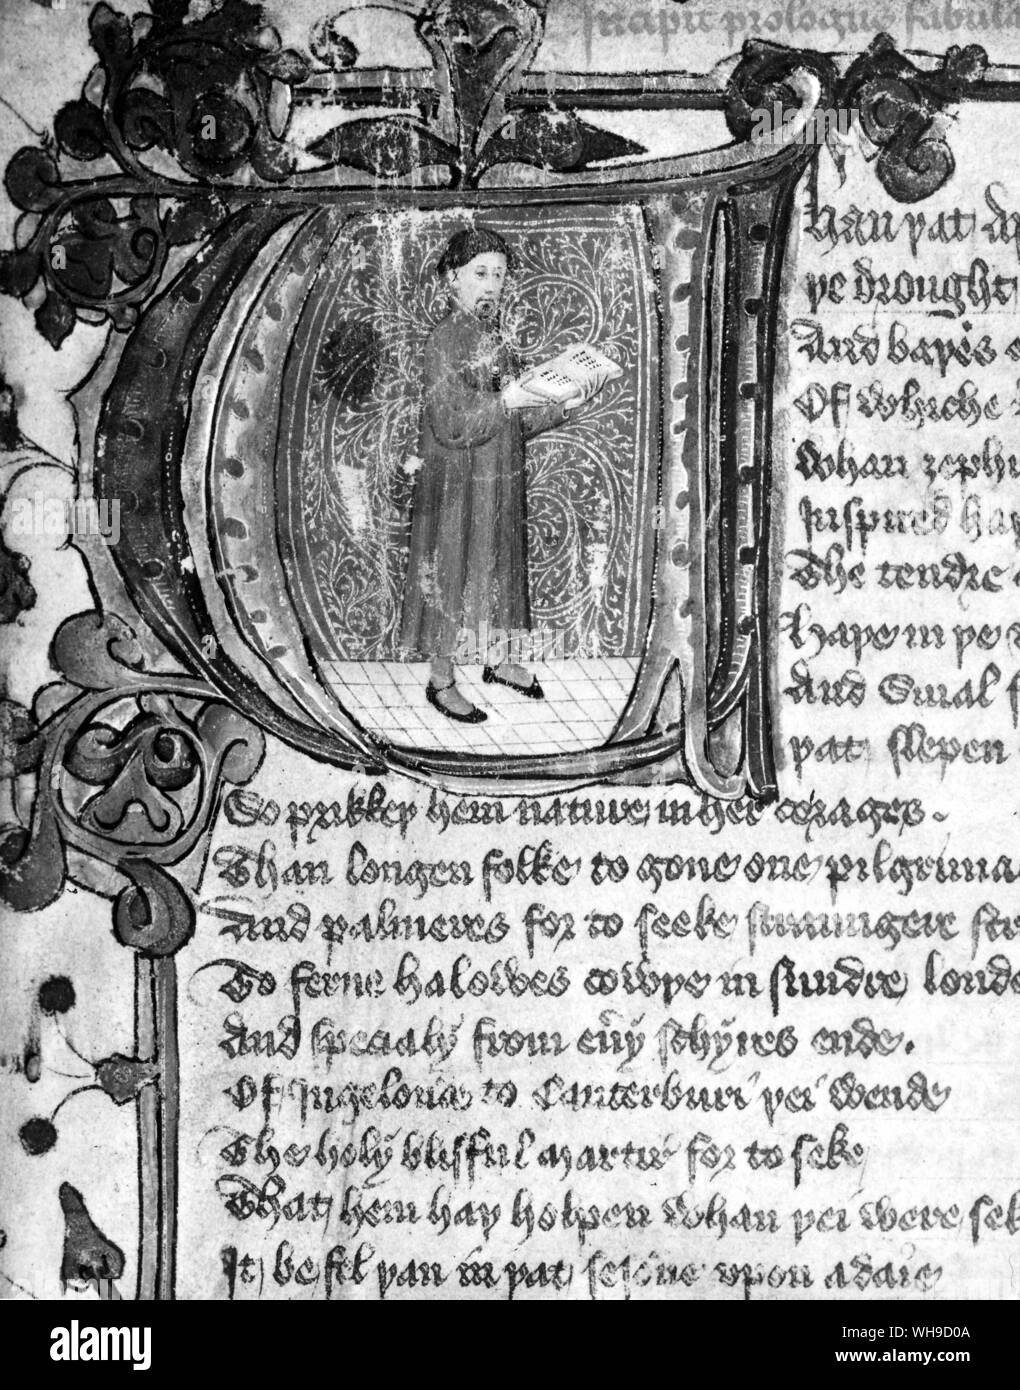 Incipit prologus fabula
Whan þat Ap
þe drought
And baþes
Of Whiche
Whan zephi
Inspired haþ
The tendre
Haþe in þe
And Smal
þat slepen
So prikkeþ hem nature in her corages.
Than longen folke to gone one pilgrima
And palmeres for to seeke straungere str
To ferne halowes cowþe in sundre londe
And specialy from euery schyres ende.
Of Ingelond to Canterburi þei wende
The holy blisful martir for to seke
That hem haþ holpen whan þei were sek
It befel þan in þat sesone upon a daie
alamy
Image ID: WH9D0A
www.alamy.com